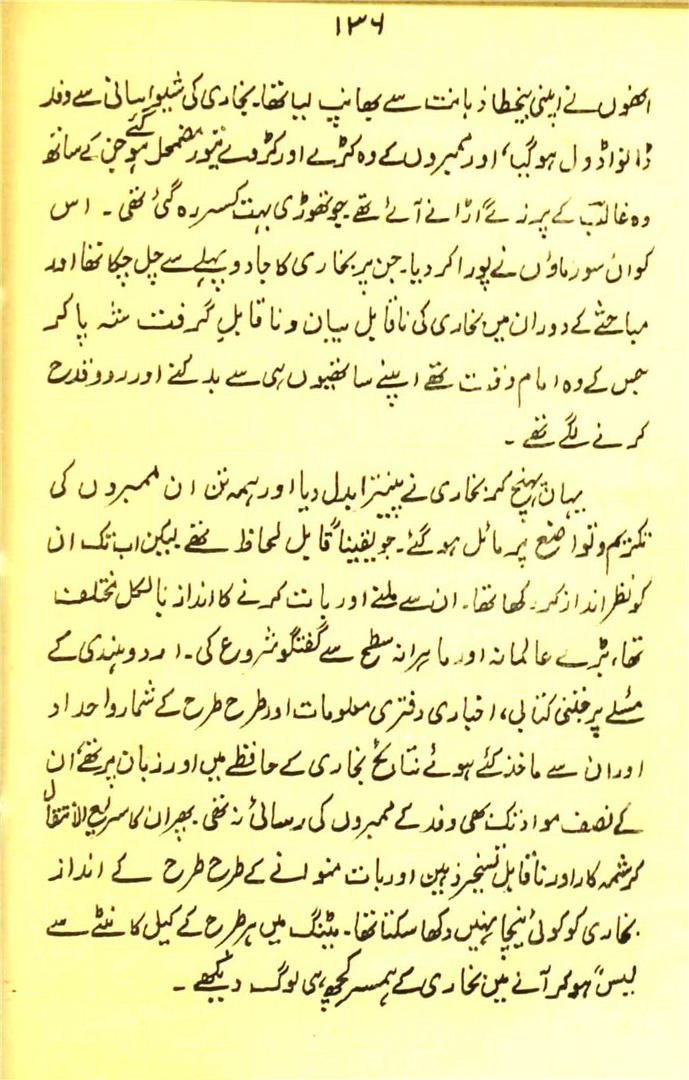 ۱۳۶
انھوں نے اپنی بیخطا ذہانت سے بھانپ لیا تھا۔ بخاری کی شیوا بیانی سے وفد
ڈانواڈول ہو گیا، اور ممبروں کے وہ کڑے اور کڑوے تیور مضمحل ہو گئے جن کے ساتھ
وہ غالبؔ کے پرزے اڑانے آئے تھے۔ جو تھوڑی بہت کسر رہ گئی تھی۔ اس
کو ان سورماؤں نے پورا کر دیا۔ جن پر بخاری کا جادو پہلے سے چل چکا تھا اور
مباحثے کے دوران میں بخاری کی ناقابل بیان و ناقابلِ گرفت شہ پا کر
جس کے وہ امام وقت تھے اپنے ساتھیوں ہی سے بدکنے اور ردوقدح
کرنے لگے تھے۔
یہاں پہنچ کر بخاری نے پینترا بدل دیا اور ہمہ تن ان ممبروں کی
تکریم و تواضع پر مائل ہو گئے۔ جو یقیناً قابل لحاظ تھے لیکن اب تک ان
کو نظر انداز کر رکھا تھا۔ ان سے ملنے اور بات کرنے کا انداز بالکل مختلف
تھا، بڑے عالمانہ اور ماہرانہ سطح سے گفتگو شروع کی۔ اردو ہندی کے
مسئلے پر جتنی کتابی، اخباری دفتری معلومات اور طرح طرح کے شمار و اعداد
اور ان سے ماخذ کئے ہوئے نتائج بخاری کے حافظے میں اور زبان پر تھے، ان
کے نصف مواد تک بھی وفد کے ممبروں کی رسائی نہ تھی۔ پھر ان کا سریع الانتقال
کرشمہ کار اور ناقابل تسخیر ذہن اور بات منوانے کے طرح طرح کے انداز
بخاری کو کوئی نیچا نہیں دکھا سکتا تھا۔ مٹینگ میں ہر طرح کے کیل کانٹے سے
لیس ہو کر آنے میں بخاری کے ہمسر کچھ ہی لوگ دیکھے۔